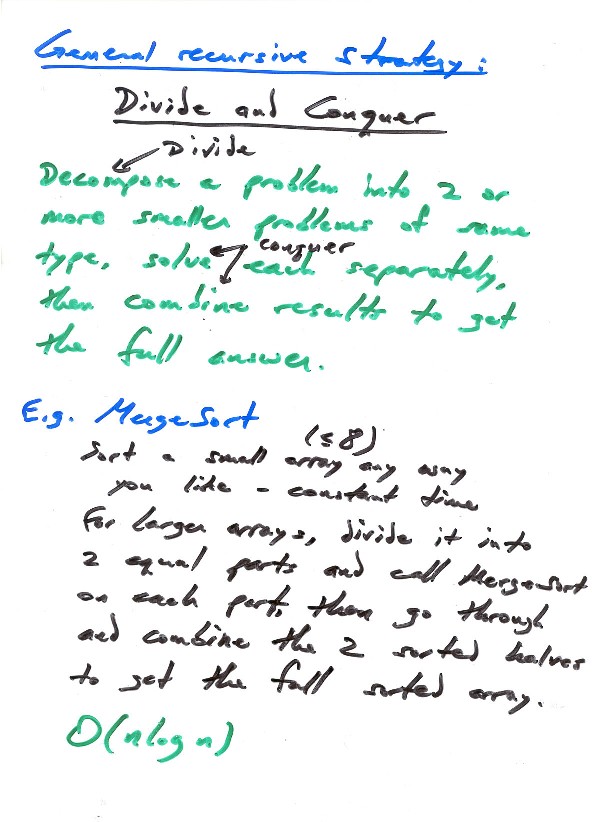 General recursive strategy:
Divide and Conquer
Divide
Decompose a problem into 2 or
more smaller problems of same
type, solve each separately,
conquer
then combine results to get
the full answer.
E.g. MergeSort
(≤ 8)
Sort a small array any way
you like - constant time
For larger arrays, divide it into
2 equal parts and call MergeSort
on each part, then go through
and combine the 2 sorted halves
to get the full sorted array.
O(n log n)